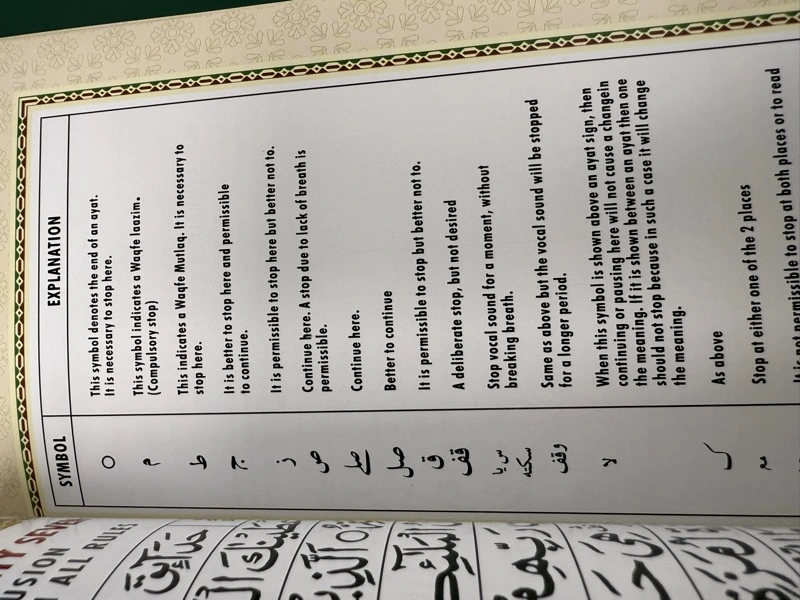 SYMBOL EXPLANATION
○ This symbol denotes the end of an ayat.
It is necessary to stop here.
م This symbol indicates a Waqfe laazim.
(Compulsory stop)
ط This indicates a Waqfe Mutlaq. It is necessary to
stop here.
ج It is better to stop here and permissible
to continue.
ز It is permissible to stop here but better not to.
ص Continue here. A stop due to lack of breath is
permissible.
صلے Continue here.
صل Better to continue
ق It is permissible to stop but better not to.
قف A deliberate stop, but not desired
س یا Stop vocal sound for a moment, without
سکتہ breaking breath.
وقف Same as above but the vocal sound will be stopped
for a longer period.
لا When this symbol is shown above an ayat sign, then
continuing or pausing here will not cause a changein
the meaning. If it is shown between an ayat then one
should not stop because in such a case it will change
the meaning.
ک As above
مع Stop at either one of the 2 places
permissible to stop at both places or to read
ALL RULES